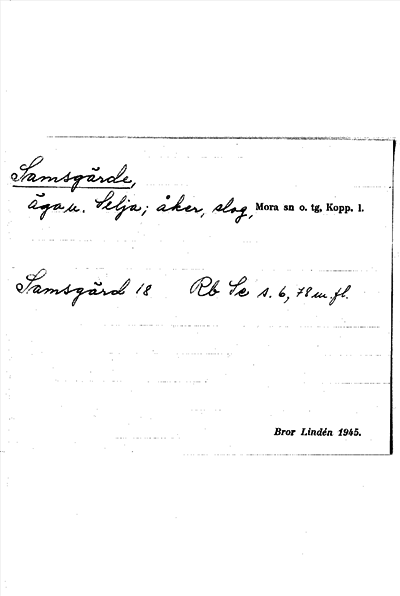 Samsgärde,
äga u. Selja; åker, slog, Mora sn o. tg, Kopp. l.
Samsgärd 18 Rb Se s. 6, 78 m. fl.
Bror Lindén 1945.